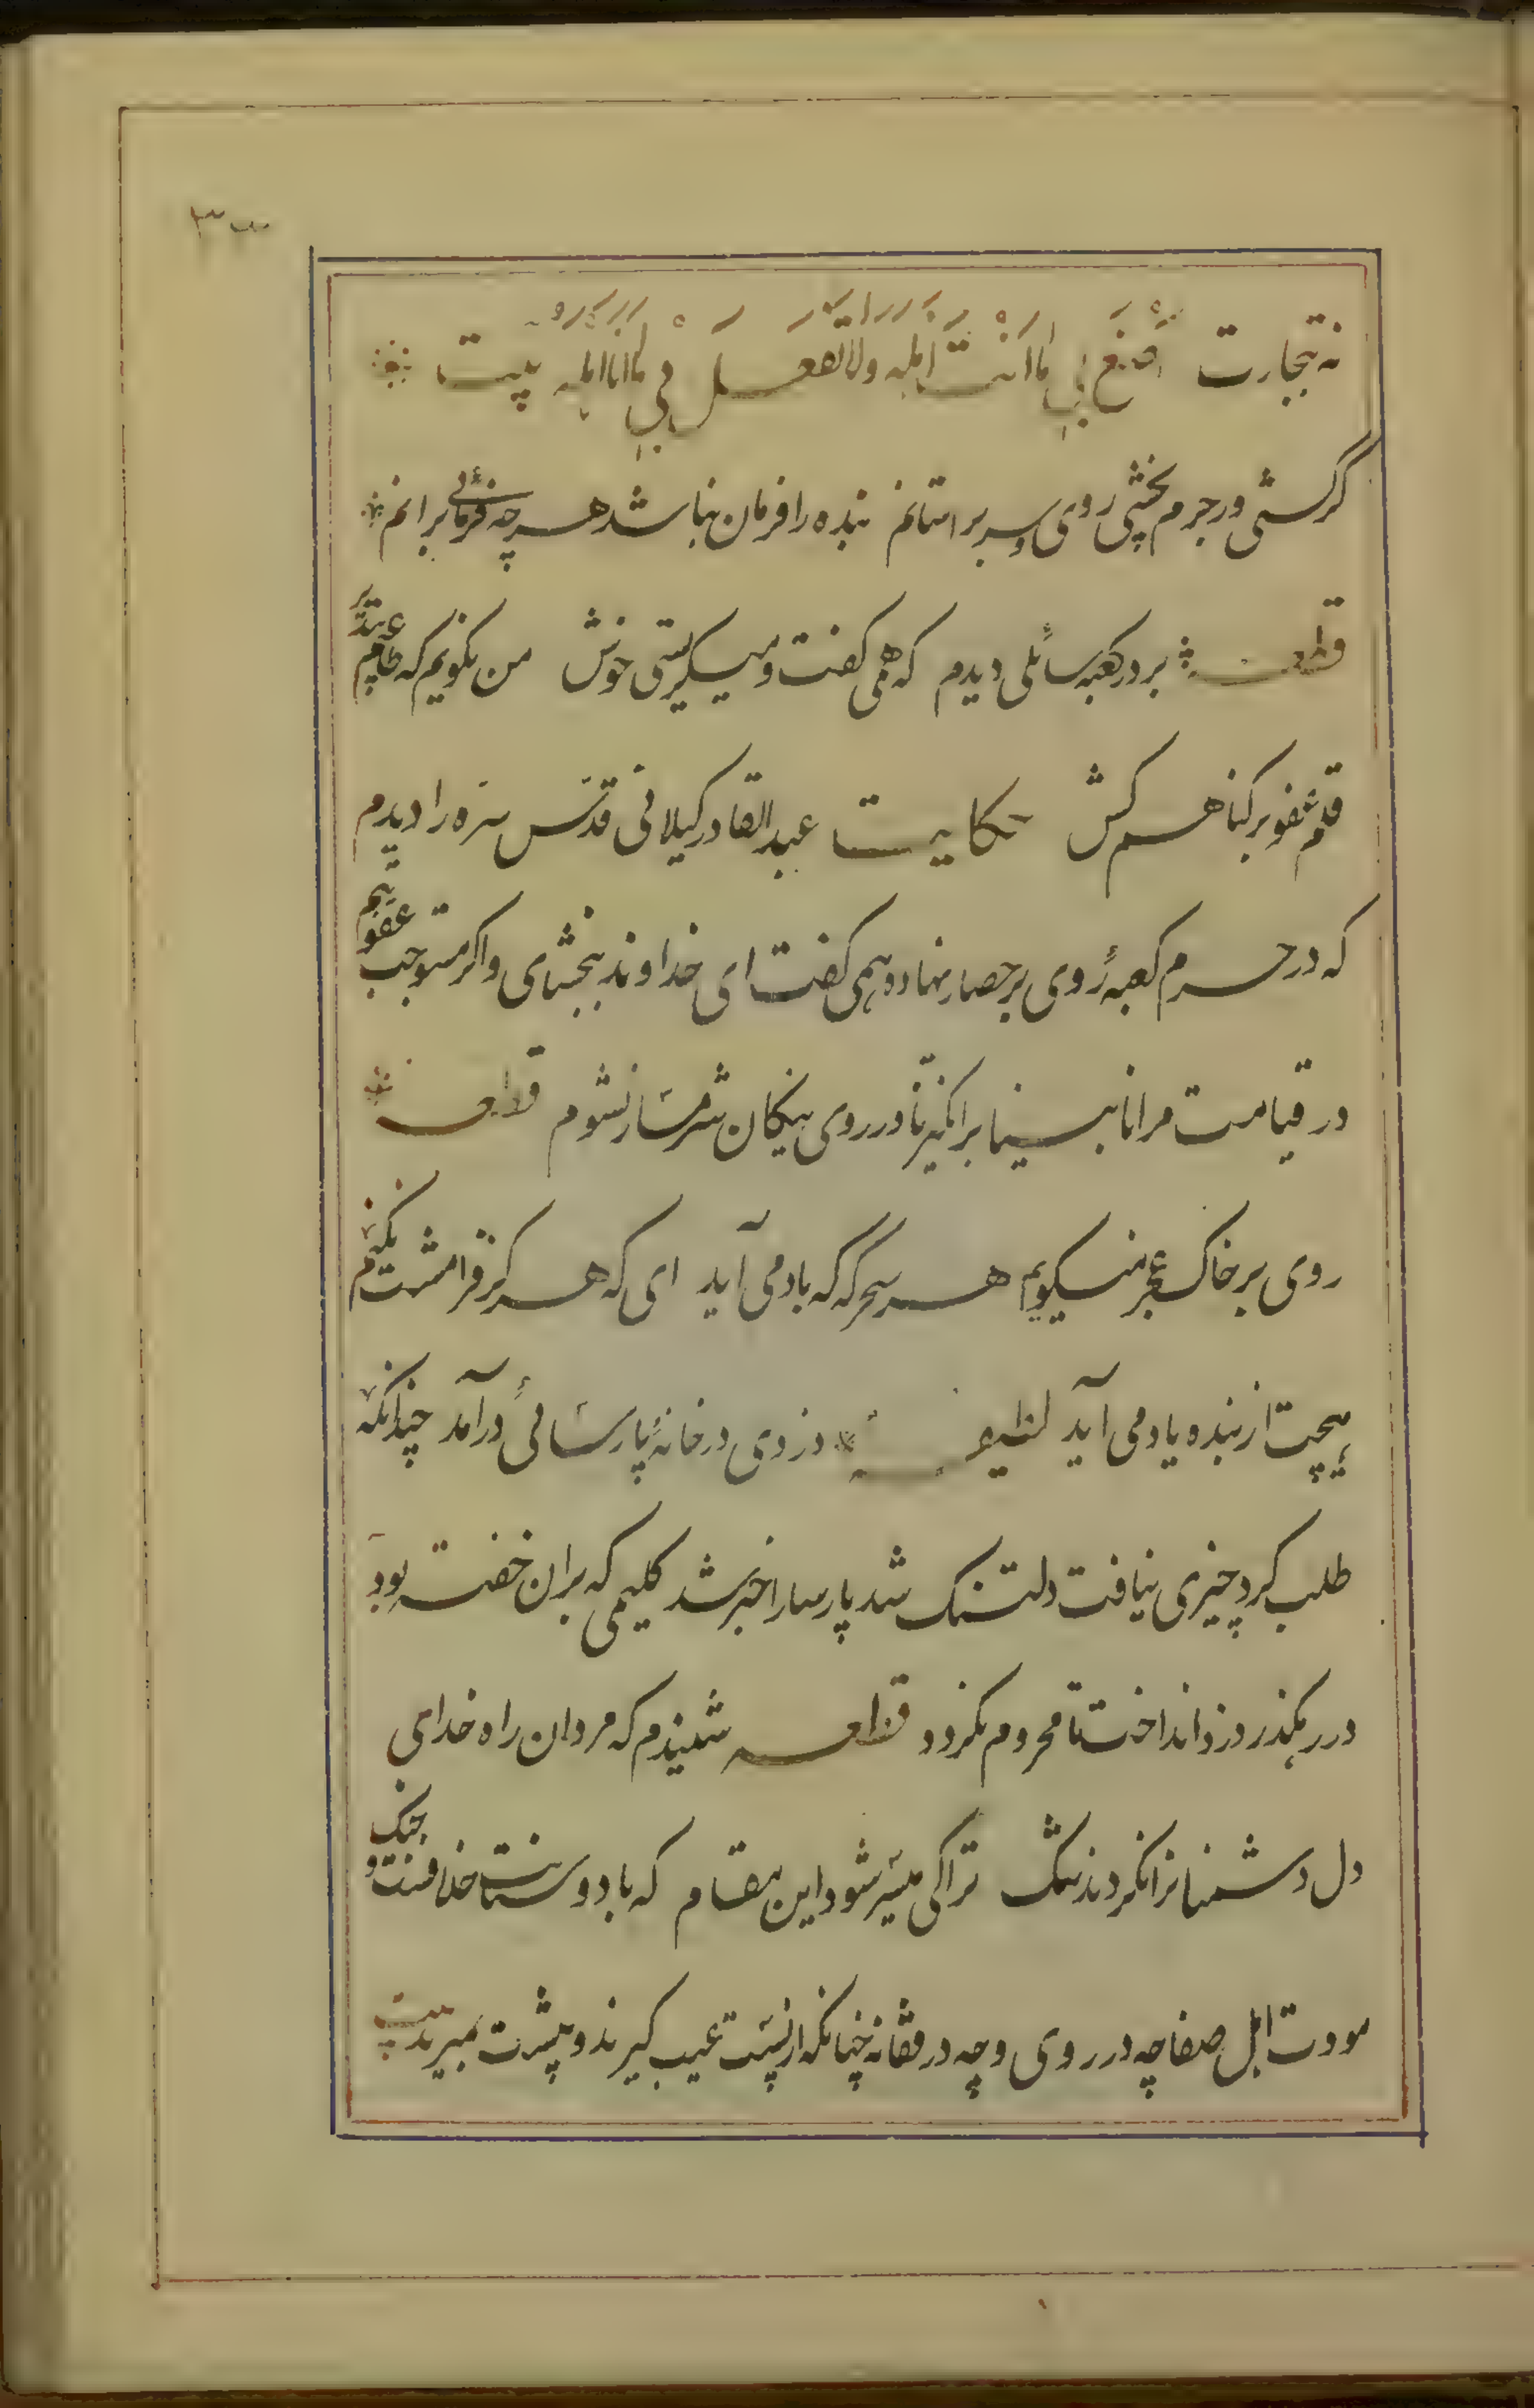 نه بتجارت اصنع بی ما انت اهله ولا تفعل بی ما انا اهله بیت
گر کشی ور جرم بخشی روی و سر بر استانم بنده را فرمان نباشد هرچه فرمائی برانم
قطعه بر در کعبه سائلی دیدم که همی کفت و میکریستی خوش من نکویم که طاعتم بپذیر
قلم عفو بر کناهم کش حکایت عبدالقادر کیلانی قدس سره را دیدم
که در حرم کعبه روی بر حصار نهاده همی کفت ای خداوند ببخشای و اکر مستوجب عقوبتم
در قیامت مرا نابینا برانکیز تا در روی نیکان شرمسار نشوم قطعه
روی بر خاک عجز میکویم هر سحرکه که باد می آید ای که هرکز فرامشت نکنم
هیچت از بنده یاد می آید لطیفه دزدی در خانهٔ پارسائی درآمد چندانکه
طلب کرد چیزی نیافت دلتنک شد پارسا را خبر شد کلیمی که بران خفته بود
در رهکذر دزد انداخت تا محروم نکردد قطعه شنیدم که مردان راه خدای
دل دشمنانرا نکردند تنک ترا کی میسر شود این مقام که با دوستانت خلافست و جنک
مودت اهل صفا چه در روی و چه در قفا نه چنانکه از پست عیب کیرند و پیشت بمیرند بیت